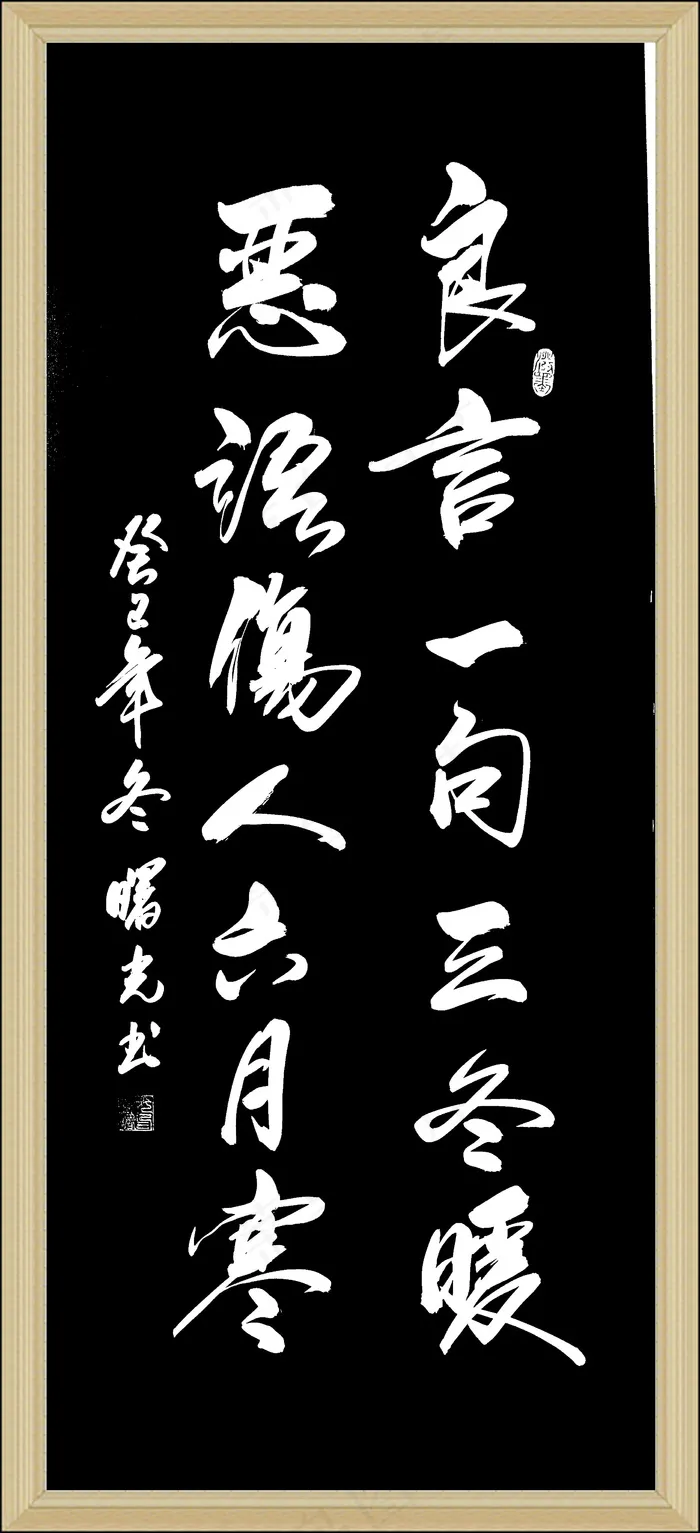 良言一句三冬暖
恶語傷人六月寒
癸巳年冬曙光书